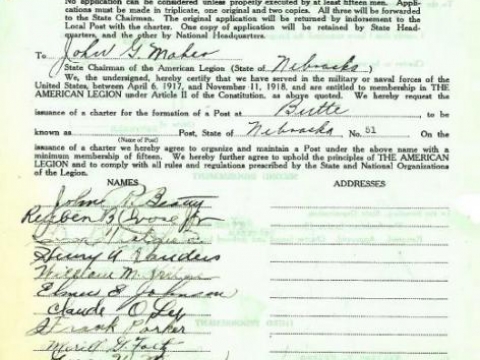 No application can be considered unless properly executed by at least fifteen men. Appli-
cations must be made in triplicate, one original and two copies. All three will be forwarded
to the State Chairman. The original application will be returned by indorsement to the
Local Post with charter. One copy of application will be retained by State Head-
quarters, and the other by National Headquarters.
To John G. Maher
State Chairman of the American Legion (State of Nebraska)
We, the undersigned, hereby certify that we have served in the military or naval forces of the
United States, between April 6, 1917, and November 11, 1918, and are entitled to membership in THE
AMERICAN LEGION under Article II of the Constitution, as above quoted. We hereby request the
issuance of a charter for the formation of a Post at Butte, to be
known as Post, State of Nebraska No. 51 On the
(Name of Post)
issuance of a charter we hereby agree to organize and maintain a Post under the above name with a
minimum membership of fifteen. We hereby further agree to uphold the principles of THE AMERICAN
LEGION and to comply with all rules and regulations prescribed by the State and National Organizations
of the Legion.
NAMES ADDRESSES
Reuben
Henry A
William M.
Elmer E Johnson
Claude O
Frank Parker
Merill G.